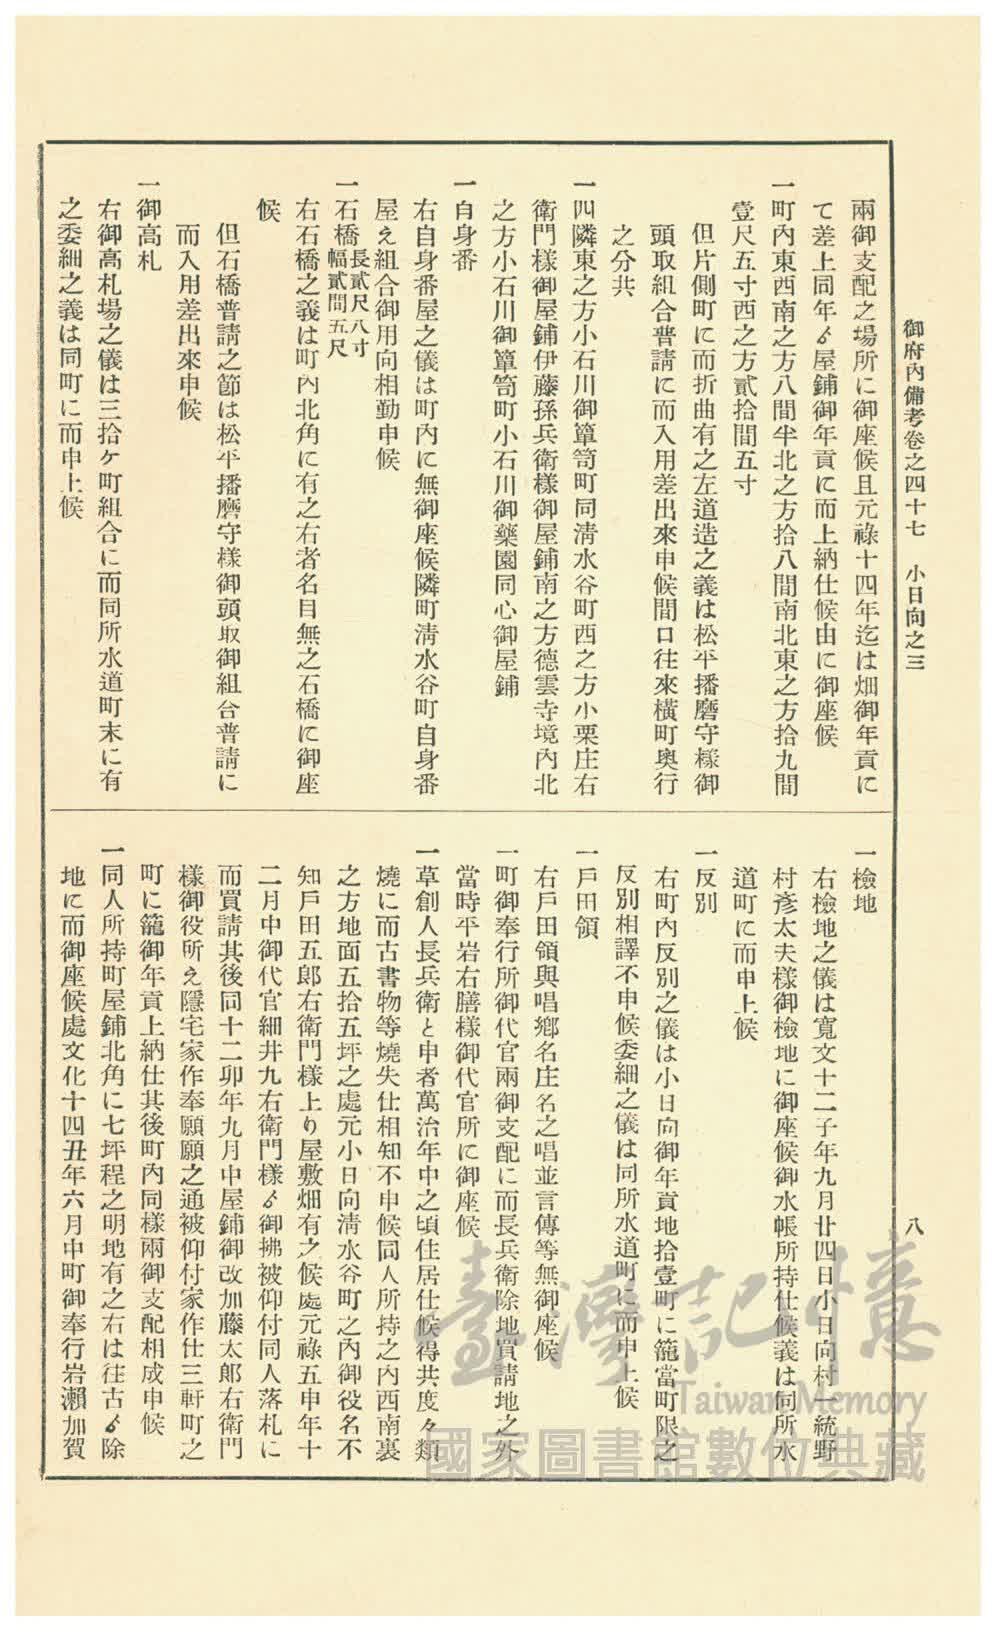 御府內備考卷之四十七　小日向之三
八
兩御支配之場所に御座候且元祿十四年迄は畑御年貢に
て差上同年ゟ屋鋪御年貢に而上納仕候由に御座候
一町內東西南之方八間半北之方拾八間南北東之方拾九間
壹尺五寸西之方貳拾間五寸
但片側町に而折曲有之左道造之義は松平播磨守樣御
頭取組合普請に而入用差出來申候間口往來橫町奧行
之分共
一四隣東之方小石川御簞笥町同清水谷町西之方小栗庄右
衛門樣御屋鋪伊藤孫兵衛樣御屋鋪南之方德雲寺境內北
之方小石川御簞笥町小石川御藥園同心御屋鋪
一自身番
右自身番屋之儀は町內に無御座候隣町清水谷町自身番
屋え組合御用向相勤申候
一石橋 長貳尺八寸 幅貳間五尺
右石橋之義は町內北角に有之右者名目無之石橋に御座
候
但石橋普請之節は松平播磨守樣御頭取御組合普請に
而入用差出來申候
一御高札
右御高札場之儀は三拾ケ町組合に而同所水道町末に有
之委細之義は同町に而申上候
一檢地
右檢地之儀は寬文十二子年九月廿四日小日向村一統野
村彥太夫樣御檢地に御座候御水帳所持仕候義は同所水
道町に而申上候
一反別
右町內反別之儀は小日向御年貢地拾壹町に籠當町限之
反別相譯不申候委細之儀は同所水道町に而申上候
一戶田領
右戶田領與唱鄉名庄名之唱並言傳等無御座候
一町御奉行所御代官兩御支配に而長兵衛除地買請地之外
當時平岩右膳樣御代官所に御座候
一草創人長兵衛と申者萬治年中之頃住居仕候得共度々類
燒に而古書物等燒失仕相知不申候同人所持之內西南裏
之方地面五拾五坪之處元小日向清水谷町之內御役名不
知戶田五郎右衛門樣上り屋敷畑有之候處元祿五申年十
二月中御代官細井九右衛門樣ゟ御拂被仰付同人落札に
而買請其後同十二卯年九月中屋鋪御改加藤太郎右衛門
樣御役所え隱宅家作奉願願之通被仰付家作仕三軒町之
町に籠御年貢上納仕其後町內同樣兩御支配相成申候
一同人所持町屋鋪北角に七坪程之明地有之右は往古ゟ除
地に而御座候處文化十四丑年六月中町御奉行岩瀨加賀
臺灣記憶
Taiwan Memory
國家圖書館數位典藏